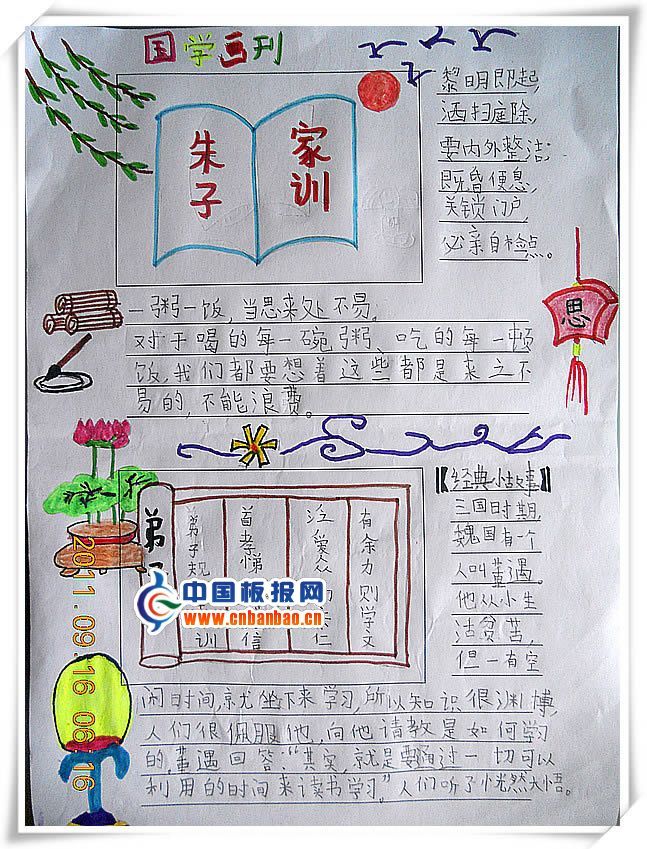 国学画刊
朱子
家训
黎明即起,
洒扫庭除,
要内外整洁;
既昏便息,
关锁门户,
必亲自检点。
思
一粥一饭,当思来处不易。
对于喝的每一碗粥、吃的每一顿
饭,我们都要想着这些都是来之不
易的,不能浪费。
弟
弟子规
训
首孝悌
信
泛爱众
仁
有余力则学文
中国板报网
www.cnbanbao.cn
【经典小故事】
三国时期,
魏国有一个
人叫董遇,
他从小生
活贫苦,
但一有空
闲时间,就坐下来学习,所以知识很渊博,
人们很佩服他,向他请教是如何学习
的,董遇回答:“其实,就是要通过一切可以
利用的时间来读书学习”人们听了恍然大悟。
2011.09.16 06:16